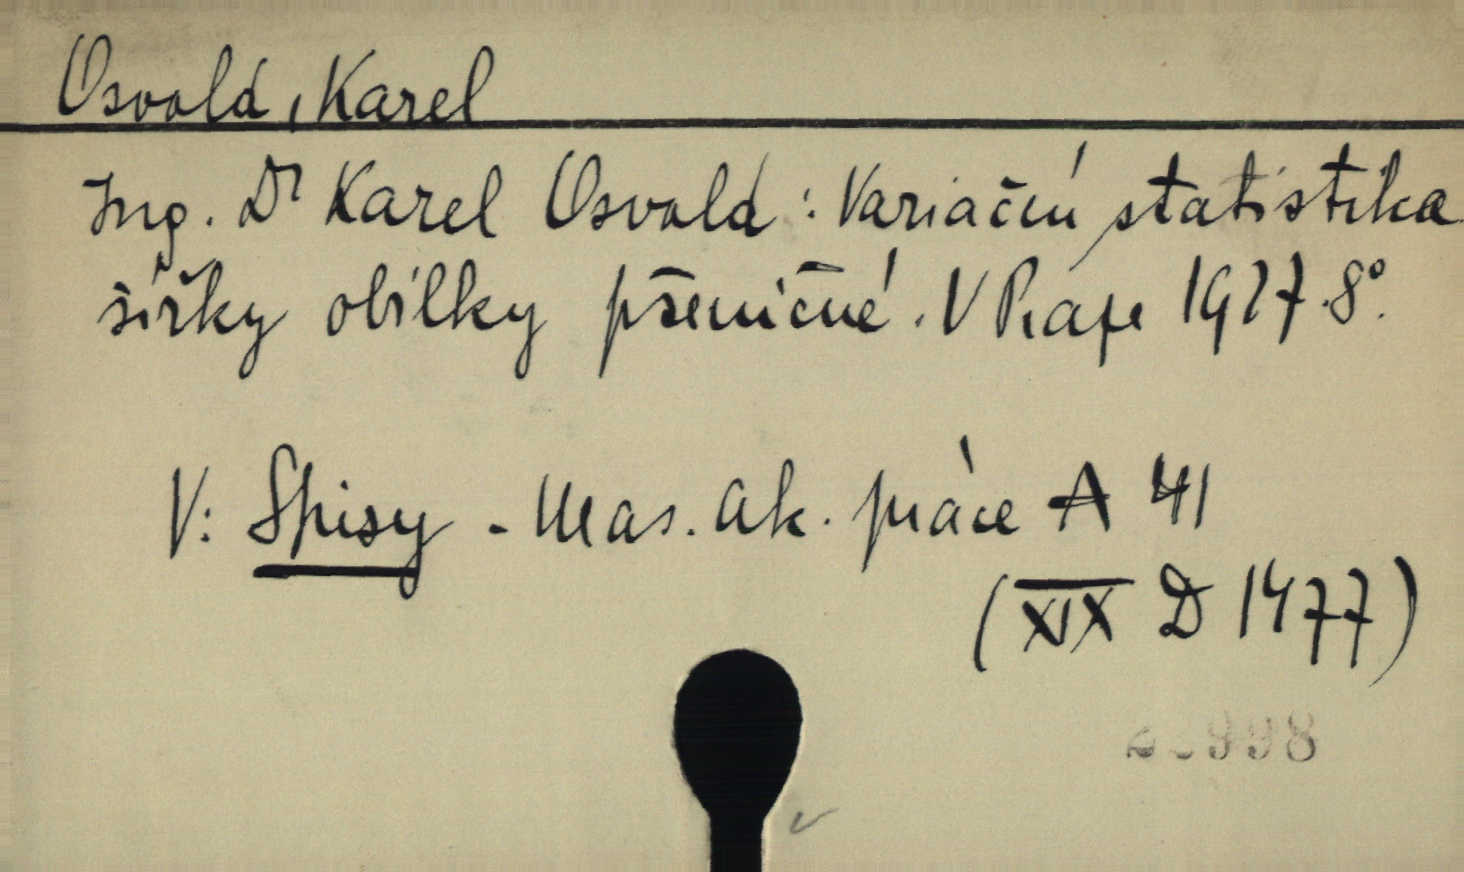 Osvald, Karel
Ing. Dr Karel Osvald: Variační statistika
šířky obilky pšeničné. V Praze 1927. 8°.
V: Spisy - Mas. ak. práce A 41
(XIX D 1477)